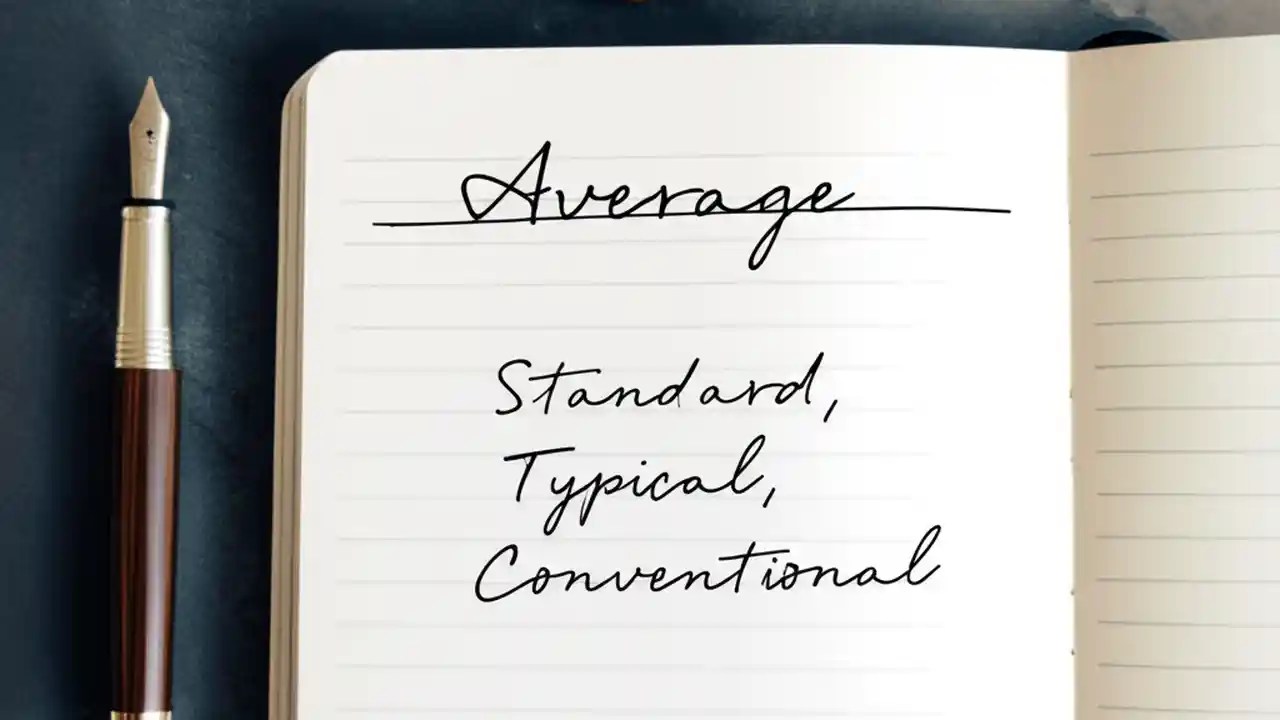 Average
Standard,
Typical,
Conventional